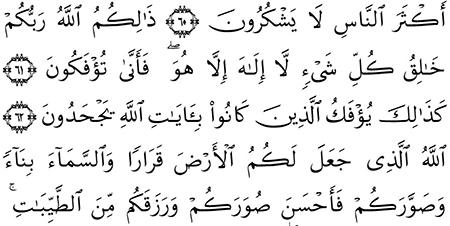 أَكْثَرَ ٱلنَّاسِ لَا يَشْكُرُونَ ٦٠ ذَٰلِكُمُ ٱللَّهُ رَبُّكُمْ
خَٰلِقُ كُلِّ شَىْءٍ لَّا إِلَٰهَ إِلَّا هُوَ ۖ فَأَنَّىٰ تُؤْفَكُونَ ٦١
كَذَٰلِكَ يُؤْفَكُ ٱلَّذِينَ كَانُوا۟ بِـَٔايَٰتِ ٱللَّهِ يَجْحَدُونَ ٦٢
ٱللَّهُ ٱلَّذِى جَعَلَ لَكُمُ ٱلْأَرْضَ قَرَارًا وَٱلسَّمَآءَ بِنَآءً
وَصَوَّرَكُمْ فَأَحْسَنَ صُوَرَكُمْ وَرَزَقَكُم مِّنَ ٱلطَّيِّبَٰتِ ۚ